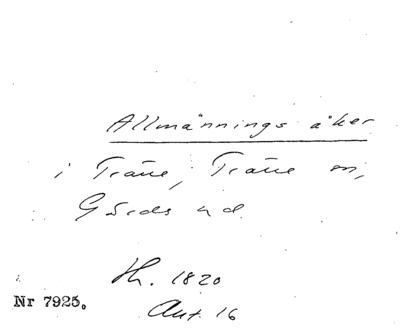 Allmännings åker
i Träne, Träne sn,
Gärds hd.
Hh. 1820
Nr 7925.
Akt. 16